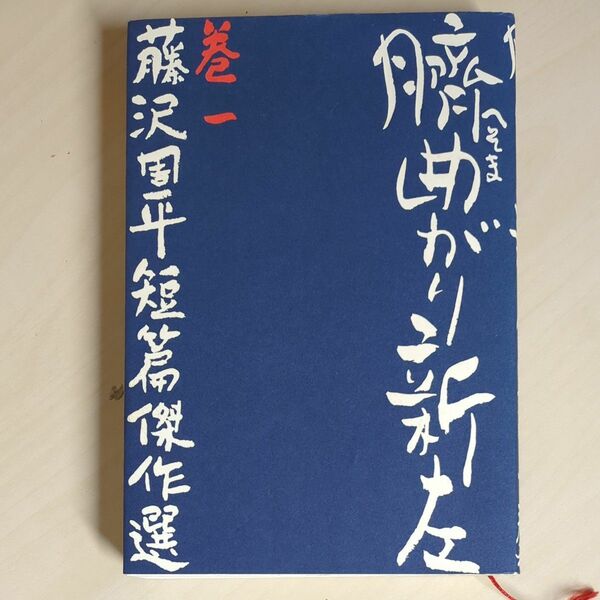 臍曲がり新左
へそま
巻一
藤沢周平短篇傑作選